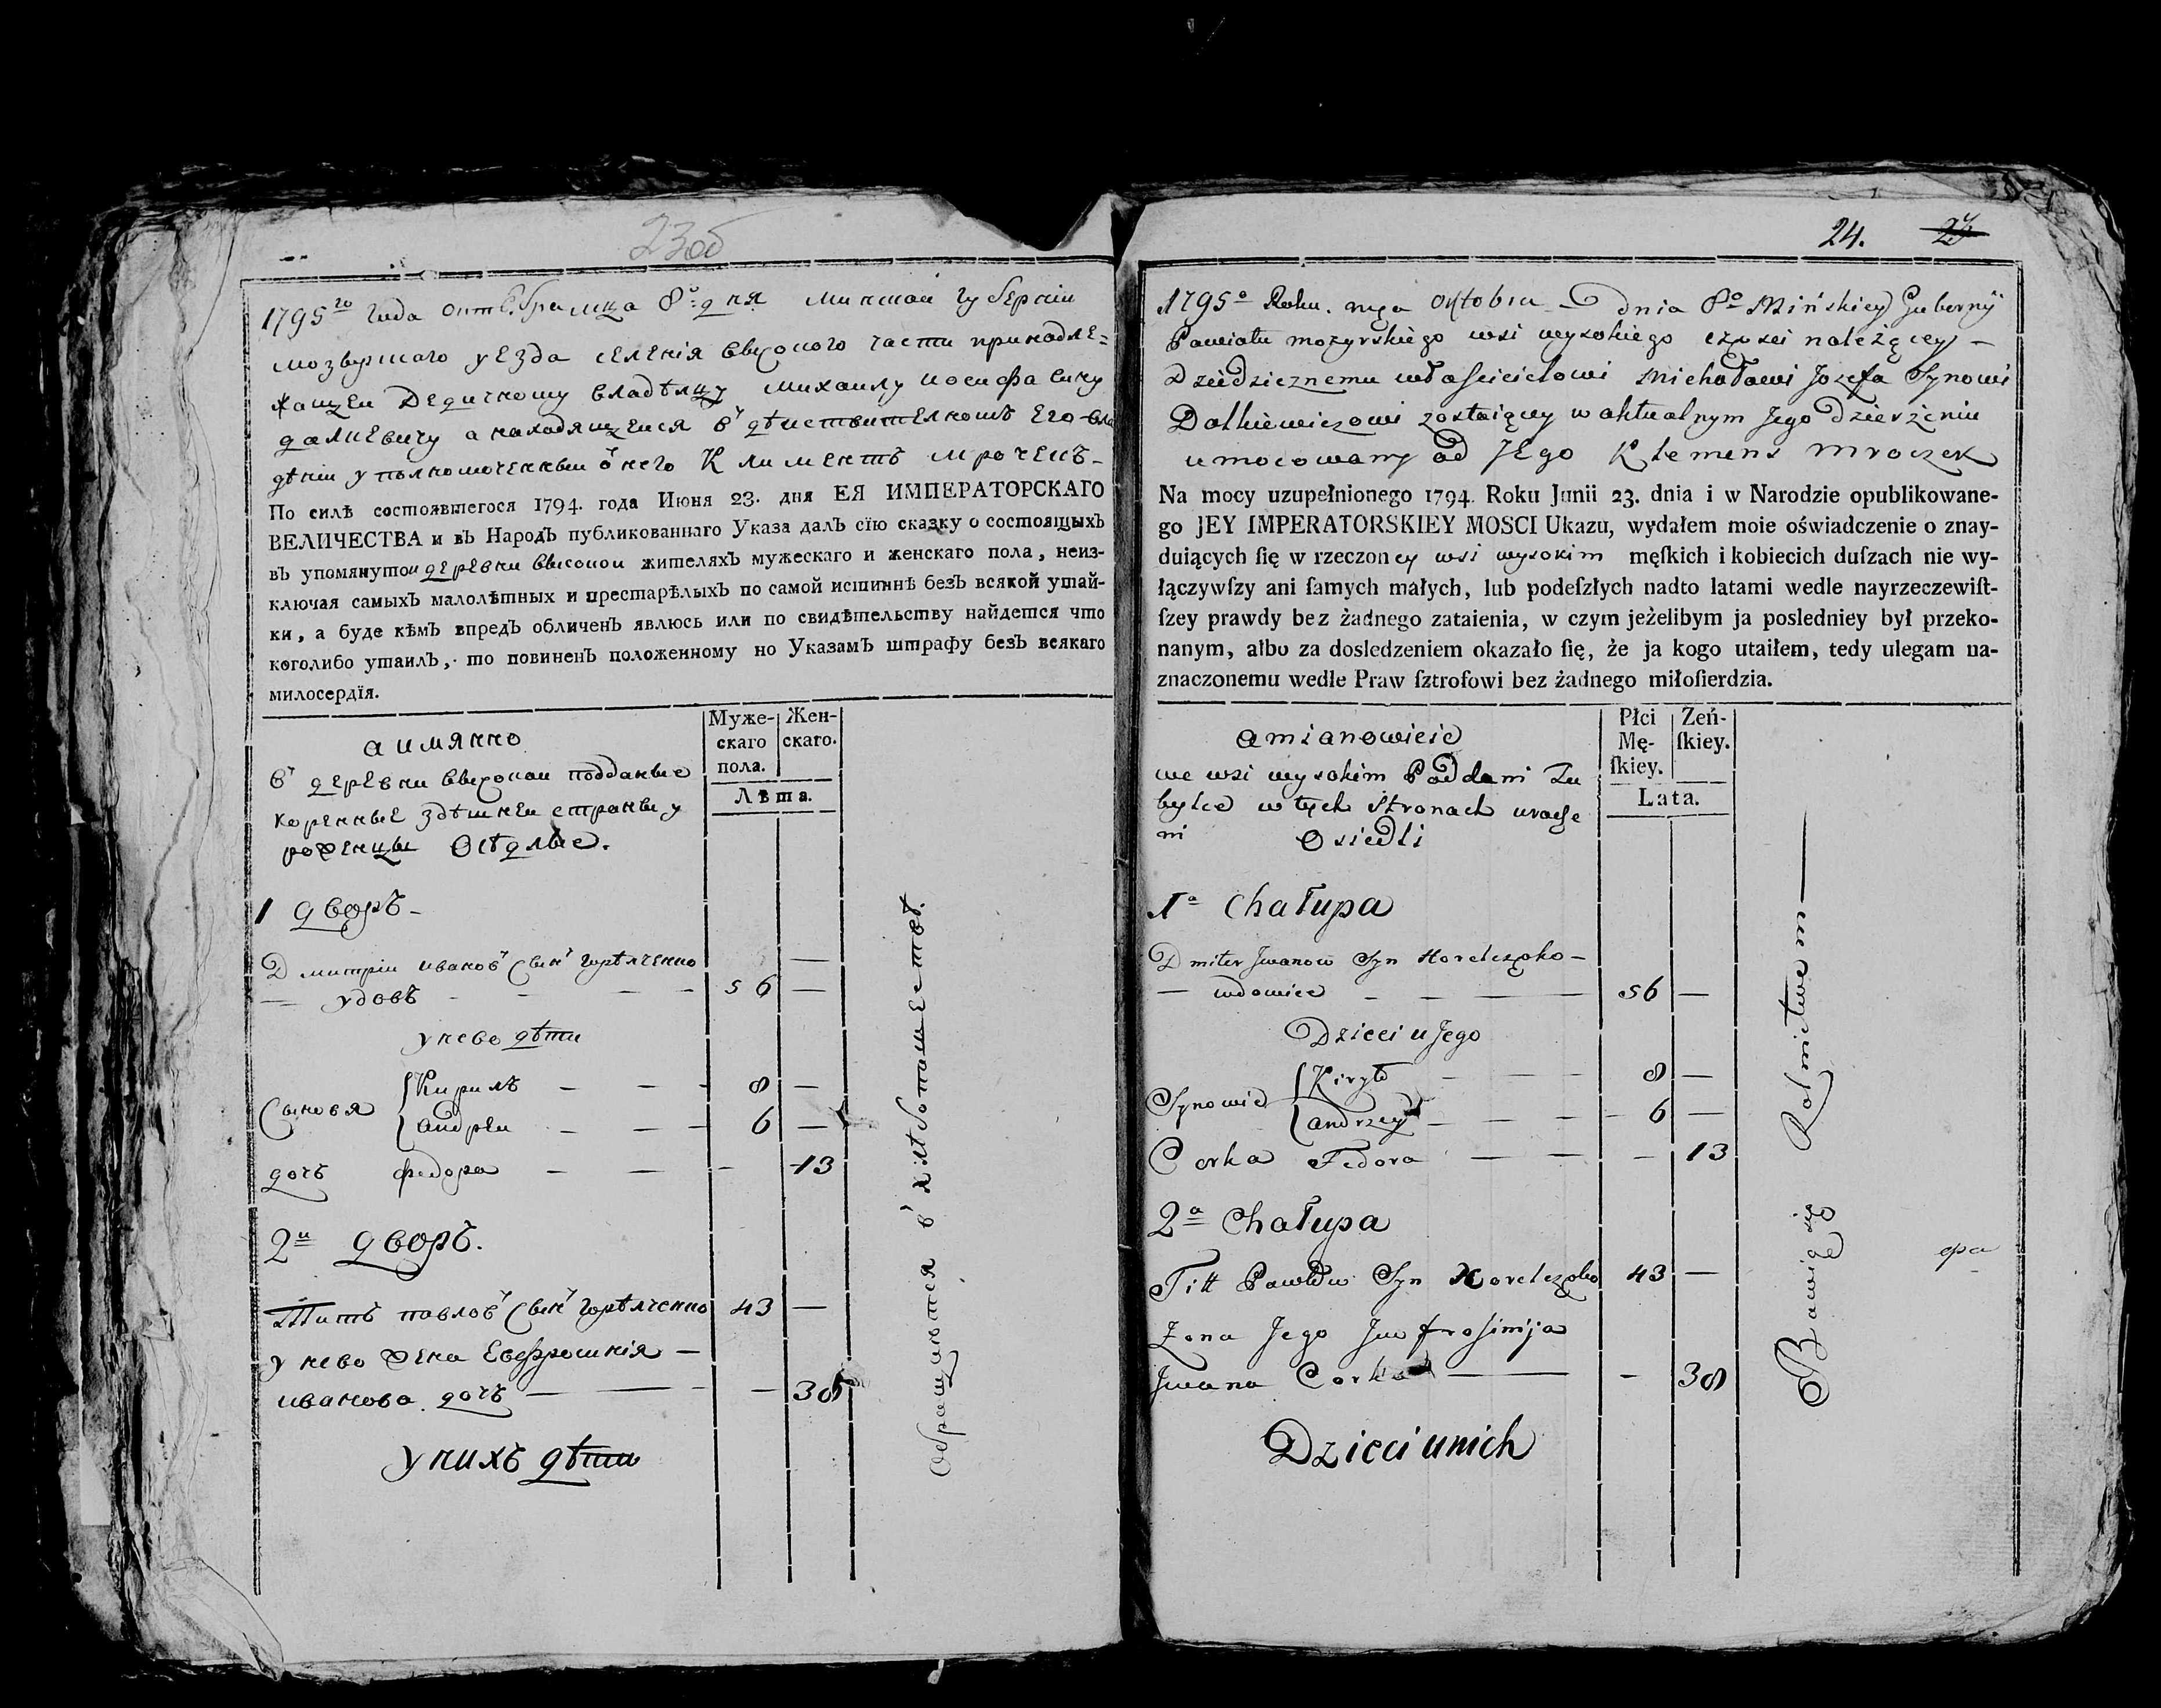 23об
1795го года октебра мца 8о: дня минской губернии
мозырскаго уезда селения высокого части принадле=
жащеи Дедичному владѣлцу михаилу иосифавичу
далкевичу а находящеися в дѣиствителномъ его вла
дѣнии уполномоченныи о него Климентъ мрочекъ-
По силѣ состоявшегося 1794. года Июня 23. дня ЕЯ ИМПЕРАТОРСКАГО
ВЕЛИЧЕСТВА и въ Народъ публикованнаго Указа далъ сїю сказку о состоящыхъ
въ упомянутои деревни высокои жителяхъ мужескаго и женскаго пола, неиз-
ключая самыхъ малолѣтныхъ и престарѣлыхъ по самой истиннѣ безъ всякой утай-
ки, а буде кѣмъ впредъ обличенъ явлюсь или по свидѣтельству найдется что
коголибо утаилъ, то повиненъ положенному по Указамъ штрафу безъ всякаго
милосердїя.
аимянно
в деревни высокои подданые
коренные здѣшнеи страны у
роженцы Осѣдлые.
Муже-
скаго
пола.
Жен-
скаго.
Лѣта.
1 дворъ-
Дмитрии иванов сын горѣлченко —
— удовъ - - — - 56 —
унево дѣти
Сыновя { Кирилъ — — - 8 —
{ андреи — — - 6 —
дочъ федора — — - 13
2и дворъ.
Титъ павлов сын горѣлченко 43 —
унево жена Евфросиния —
иванова дочъ — — - — 38
унихъ дѣти
обращаются в хлѣбопашествѣ.
24. 27
1795o Roku. mca Oktobra dnia 8o Mińskiey Gubernÿ
Powiatu mozyrskiego wsi wysokiego części należącey —
Dziedzicznemu właścicielowi Michałowi Jozefa Synowi
Dalkiewiczowi zostaiącey w aktualnym Jego dzierżeniu
umocowany od JEgo Klemens Mroczek
Na mocy uzupełnionego 1794. Roku Junii 23. dnia i w Narodzie opublikowane-
go JEY IMPERATORSKIEY MOSCI Ukazu, wydałem moie oświadczenie o znay-
duiących ſię w rzeczoney wsi wysokim męſkich i kobiecich duſzach nie wy-
łączywſzy ani ſamych małych, lub podeſzłych nadto latami wedle nayrzeczewiſt-
ſzey prawdy bez żadnego zataienia, w czym jeżelibym ja posledniey był przeko-
nanym, albo za dosledzeniem okazało ſię, że ja kogo utaiłem, tedy ulegam na-
znaczonemu wedle Praw ſztrofowi bez żadnego miłoſierdzia.
amianowicie
we wsi wysokim Poddani Tu
bylce w tych Stronach urodze
ni Osiedli
Płci
Mę-
ſkiey.
Zeń-
ſkiey.
Lata.
1a Chałupa
Dmiter Jwanow Syn Horelczeko —
— wdowiec - — — — 56 —
Dzieci u Jego
Synowie { Kiryło - — - 8 —
{ andrzey — — — - 6 —
Corka Fedora — — — 13
2a Chałupa
Titt Pawłow Syn Horelczeko 43 —
Zona Jego Jwfrosinija
Jwana Corka — — - 38
Dzieci unich
Bawią się Rolnictwem —